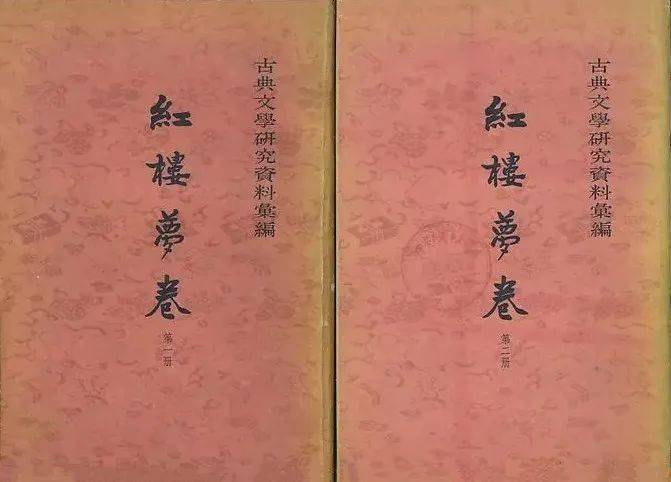 古典文學研究資料彙編
紅樓夢卷
第一册
古典文學研究資料彙編
紅樓夢卷
第二册